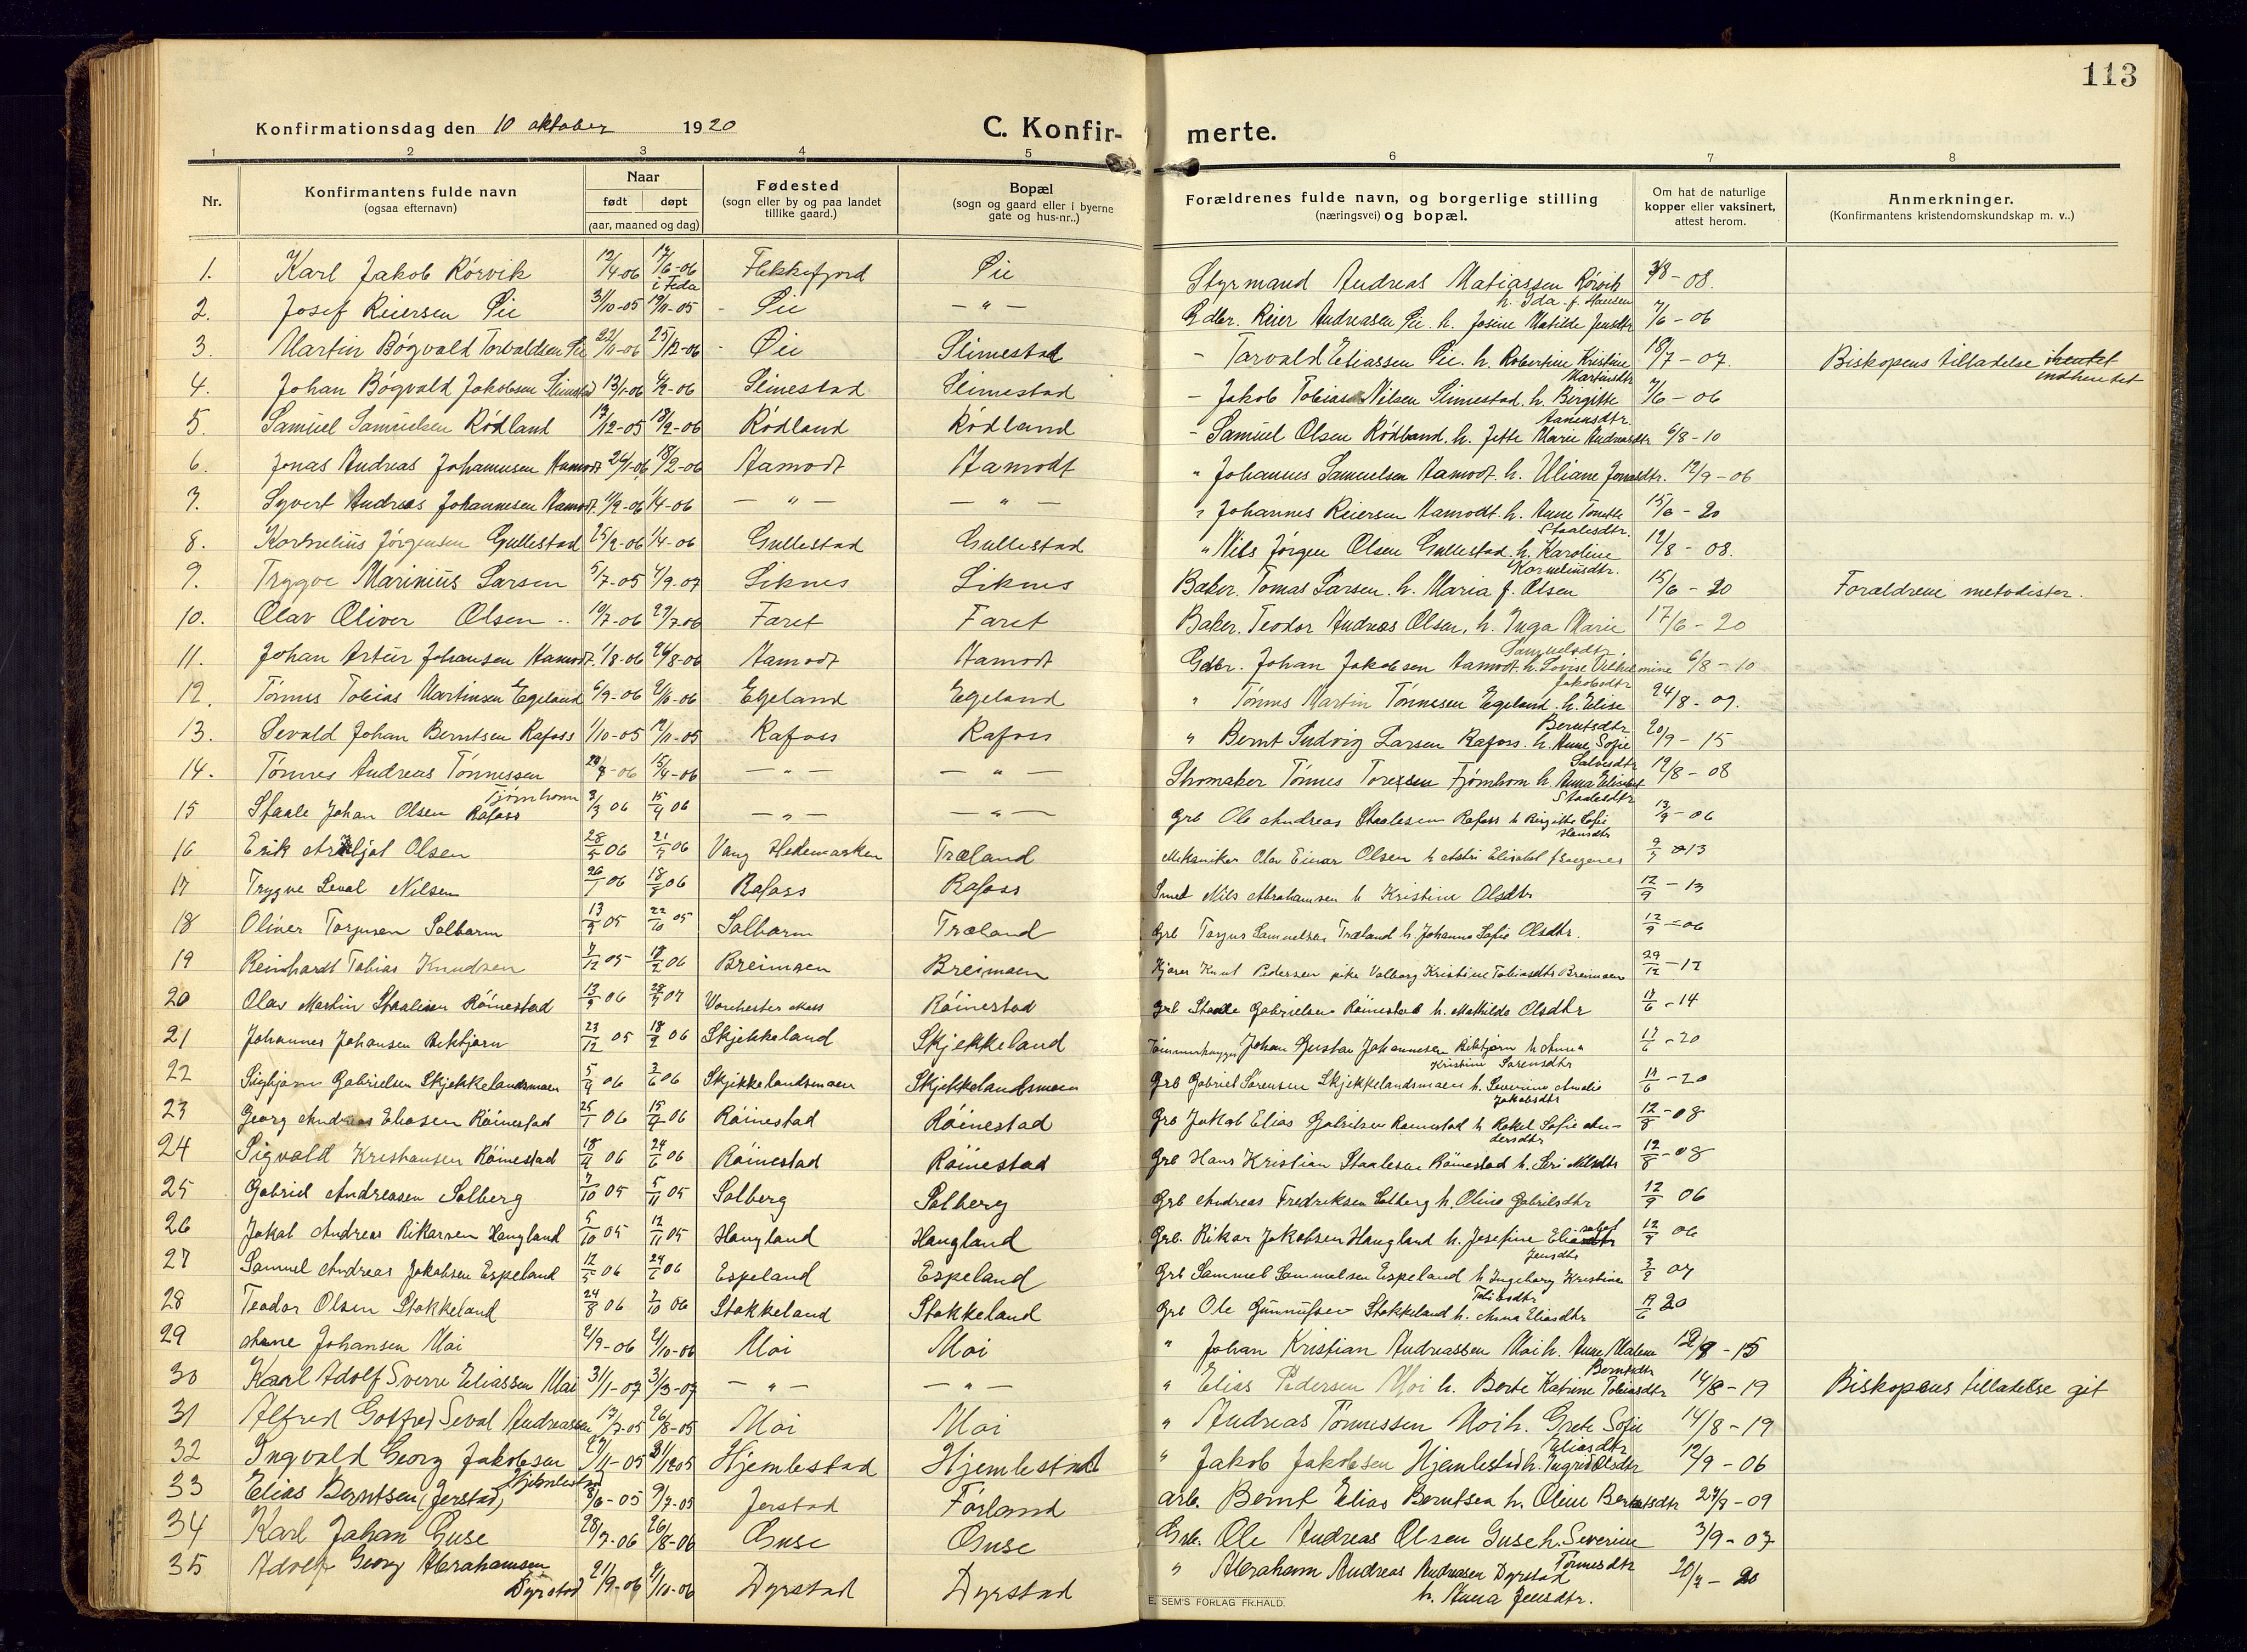 113
Konfirmationsdag den 10 oktober 1920
C. Konfir- merte.
1 2 3 4 5 6 7 8
Nr.
Konfirmantens fulde navn
(ogsaa efternavn)
Naar
født døpt
(aar, maaned og dag)
Fødested
(sogn eller by og paa landet
tillike gaard.)
Bopæl
(sogn og gaard eller i byerne
gate og hus-nr..)
Forældrenes fulde navn, og borgerlige stilling
(næringsvei) og bopæl.
Om hat de naturlige
kopper eller vaksinert,
attest herom.
Anmerkninger.
(Konfirmantens kristendomskundskap m. v..)
1. Karl Jakob Rórvik 12/4-06 17/6-06 i Feda Flekkefjord Øie Styrmand Andreas Matiassen Rórvik h. Ida f. Hansen -08.
2. Josef Reiersen Øie 31/10-05 19/11-05 - Øie — " — Gdbr. Reier Andreasen Øie. h. Josine Matilde Jensdtr 7/6-06
3. Martin Bógvald Torvaldsen Øie 22/11-06 25/12-06 - Øie Slimestad - Torvald Eliassen Øie. h. Robertine Kristine Martinsdtr 18/7-07. Biskopens tilladelse indhentet
4. Johan Bógvald Jakobsen Slimestad 13/1-06 4/2-06 Slimestad Slimestad - Jakob Tobias Nilsen Slimestad. h. Birgitte Aanensdtr. 7/6-06
5. Samuel Samuelsen Ródland 17/12-05 18/2-06 Ródland Ródland - Samuel Olsen Ródland. h. Jette Marie Andreasdtr 6/8-10
6. Jonas Andreas Johannesen Aamodt 24/1-06 18/2-06 Aamodt Aamodt " Johannes Samuelsen Aamodt. h. Uliane Jonasdtr. 12/9-06
7. Syvert Andreas Johannesen Aamodt. 11/2-06 1/4-06 — " — — " — " Johannes Reiersen Aamodt. h. Anne Tomette Staalesdtr. 15/6-20
8. Kornelius Jórgensen Gullestad 25/2-06 1/4-06 Gullestad Gullestad " Nils Jórgen Olsen Gullestad. h. Karoline Korneliusdtr. 12/8-08.
9. Trygve Marinius Larsen 5/7-05 4/9-07 Liknes Liknes Baker. Tomas Larsen. h. Maria f. Olsen 15/6-20 Forældrene metodister.
10. Olav Oliver Olsen 10/7-06 29/7-06 Faret Faret Baker. Teodor Andreas Olsen. h. Inga Marie Samuelsdtr. 17/6-20
11. Johan Artur Johansen Aamodt. 1/8-06 26/8-06 Aamodt Aamodt Gdbr. Johan Jakobsen Aamodt. h. Lovise Vilhelmine Jakobsdtr 6/8-10
12. Tónnes Tobias Martinsen Egeland 6/9-06 Egeland Egeland " Tónnes Martin Tónnesen Egeland. h. Elise Berntsdtr 24/8-09.
13. Sevald Johan Berntsen Rafoss 1/10-05 12/11-05 Rafoss Rafoss " Bernt Ludvig Larsen Rafoss. h. Anne Sofie Salvesdtr 20/9-15
14. Tónnes Andreas Tónnessen Fjórnhom 15/4-06 — " — — " — Skomaker Tónnes Toresen Fjórnhom h. Anna Elisabet Staalesdtr 12/8-08
15 Staale Johan Olsen Rafoss 3/3 06 15/4 06 — " — — " — Grb Ole Andreas Staalesen Rafoss h Birgitte Sofie Hansdtr 12/9-06
16 Erik Olsen 28/5 06 21/7 06 Vang Hedemarken Træland Mekaniker Olav Einar Olsen h Astri Elisabet 9/7 13
17 Trygve Seval Nilsen 26/7 06 18/8 06 Rafoss Rafoss Smed Nils Abrahamsen h Kristine Olsdtr 12/9-13
18 Oliver Torgusen Solbarm 13/9 05 22/10 05 Solbarm Træland Grb Torgus Samuelsen Træland h Johanne Sofie Olsdtr. 12/9-06
19 Reinhardt Tobias Knudsen 7/12 05 18/2 06 Breimoen Breimoen Kjører Knut Pedersen pike Valborg Kristine Tobiasdtr Breimoen 29/12-12
20 Olav Martin Staalesen Róinestad 13/9 06 Róinestad Grb Staale Gabrielsen Róinestad h. Mathilde Olsdtr 17/6-14
21 Johannes Johansen Birkjorn 23/12 05 18/2 06 Skjekkeland Skjekkeland Tømmerhugger Johan Gustav Johannesen Birkjorn h Anna Kristine Sørensdtr 17/6-20
22 Sigbjørn Gabrielsen Skjekkelandsmoen 5/4 06 3/6 06 Skjekkelandsmoen Skjekkelandsmoen Grb Gabriel Sørensen Skjekkelandsmoen h. Severine Amalie Jakobsdtr 17/6-20
23 Georg Andreas Eliasen Róinestad 25/1 06 15/4 06 Róinestad Róinestad Grb Jakob Elias Gabrielsen Róinestad h Rakel Sofie Andersdtr 12/8-08
24 Sigvald Kristiansen Róinestad 18/4 06 24/6 06 Róinestad Róinestad Grb Hans Kristian Staalesen Róinestad h. Siri Nilsdtr 12/8-08
25 Gabriel Andreasen Solberg 7/10 05 5/11 05 Solberg Solberg Grb Andreas Fredriksen Solberg h. Oline Gabrielsdtr 12/9 06
26 Jakob Andreas Rikarsen Haugland 5/10 05 12/11 05 Haugland Haugland Grb. Rikar Jakobsen Haugland h. Josefine Jensdtr 12/9 06
27 Samuel Andreas Jakobsen Espeland 12/5 06 24/6 06 Espeland Espeland Grb Sammel Sammelsen Espeland h Ingeborg Kristine Tobiasdtr 3/2 07
28 Teodor Olsen Stokkeland 24/8 06 7/10 06 Stokkeland Stokkeland Grb Ole Stokkeland h. Anna Eliasdtr 17/6 20
29 Johansen Moi 2/9-06 Moi Moi " Johan Kristian Andreassen Moi h. Anne Malene Berntsdtr 12/9-15
30 Karl Adolf Sverre Eliassen Moi 31/1-07 3/3-07 — " — — " — " Elias Pedersen Moi h. Berte Katrine Tobiasdtr 14/8-19 Biskopens tilladelse git
31 Alfred Gotfred Seval Andreassen 17/7-05 26/8-05 Moi Moi " Andreas Tónnessen Moi h. Grete Sofie Eliasdtr 14/8-19
32 Ingvald Georg Jakobsen Hjemlestad 27/11-05 31/12 05 Hjemlestad Hjemlestad " Jakob Jakobsen Hjemlestad h. Ingrid Olsdtr 12/9-06
33 Elias Berntsen (Jerstad) 8/6-05 9/7-05 Jerstad Fórland arb. Bernt Elias Berntsen h. Oline Berntsdtr 27/9-09
34 Karl Johan Guse 28/7-06 26/8-06 Guse Guse Grb. Ole Andreas Olsen Guse h. Severine Tónnesdtr 3/9-07
35 Adolf Georg Abrahamsen Dyrstad 21/9-06 Dyrstad Dyrstad " Abraham Andreas Andreasen Dyrstad h. Anna Jensdtr. 20/7-20
E. SEM'S FORLAG FR.HALD.